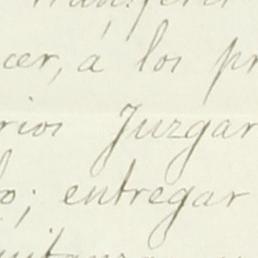 cer, á los pr
rios Juzgar
o; entregar